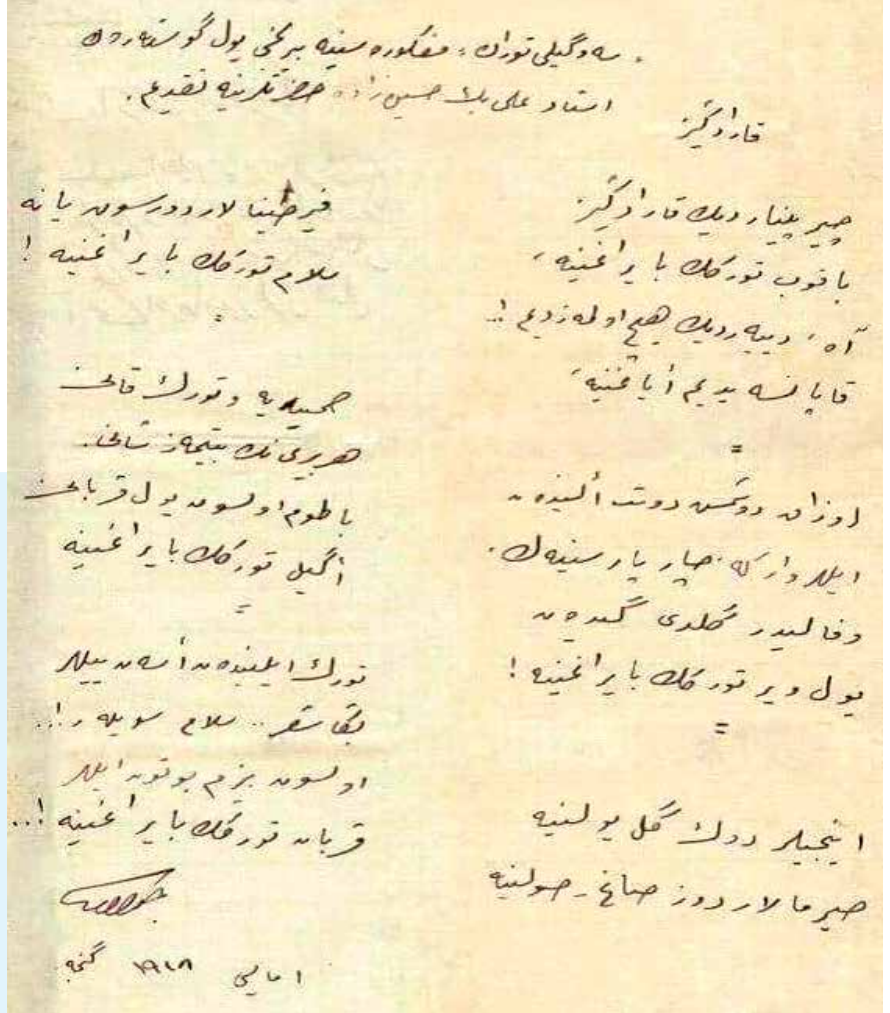 « سه‌وگیلی توران » مفکوره سینه بیرنجی یول گوسته‌ره‌ن
استاد علی بك حسین زاده حضرتلرینه تقدیم .
قاراده‌ڭیز
چیرپینیاردیك قاراده‌ڭیز
باقوب توركڭ بایراغینه ،
آه ، دییه‌ردیك هیچ اولمه‌زدیم !..
قاپانسه یدیم آیاغینه ،
=
اوزاق دوشمش دوست ألینده‌ن
ایللر وار كه چارپار سینه‌ڭ .
وفالیدر گلدی گیده‌ن
یول ویر توركڭ بایراغینه !
=
اینجیلر دوك گل یولینه
صیرمالار دوز صاغ - صولینه
فیرطینالار دورسون یانه
سلام توركڭ بایراغینه !
=
حمیدیه و تورك قانی
هر بری نڭ بیتمه‌ز شانی .
باطوم اولسون یول قربانی
أگیل توركڭ بایراغینه
=
تورك ایلینده‌ن أسه‌ن ییللر
بڭا شعر .. سلام سویلر !..
اولسون بزیم بوتون ایللر
قربان توركڭ بایراغینه !..
۱۹۱۸ گنجه